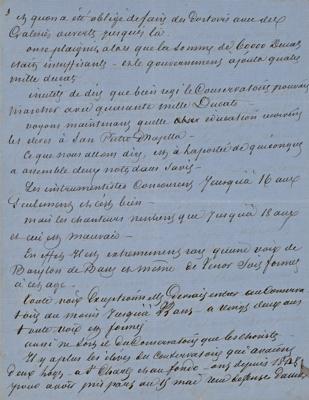 et qu'on a été obligé de faire des dortoirs avec des
Galeries ouverts jusques là
on se plaignit alors que la somme de 60000 Ducats
était insuffisante - et le gouvernement ajouta quatre
mille ducats
inutile de dire que bien régi le Conservatoire pouvait
marcher avec quarante mille Ducats -
voyons maintenant quelle education reçoivent
les élèves à San Pietro Majella -
Ce que nous allons dire, est à la portée de quiconque
a assemblé deux notes dans sa vie -
Les instrumentistes Concourent Jusqu'à 16 ans
Seulement et c'est bien -
mais les chanteurs n'entrent que jusqu'à 18 ans
et ceci est mauvais -
En effet il est extremement rare qu'une voix de
Baryton de Basse et même de Ténor Soit formée
à cet age -
toute voix Exceptionnelle devrait entrer au Conserva
toire au moins jusqu'à 22 ans - a vingt deux ans
toute voix est formée
aussi ne sort-il du Conservatoire que des choristes -
Il y a plus les élèves du Conservatoire qui anciennement
à St Charles - ont depuis 1848
pour avoir pris part au 15 mai reçu défense d'aller